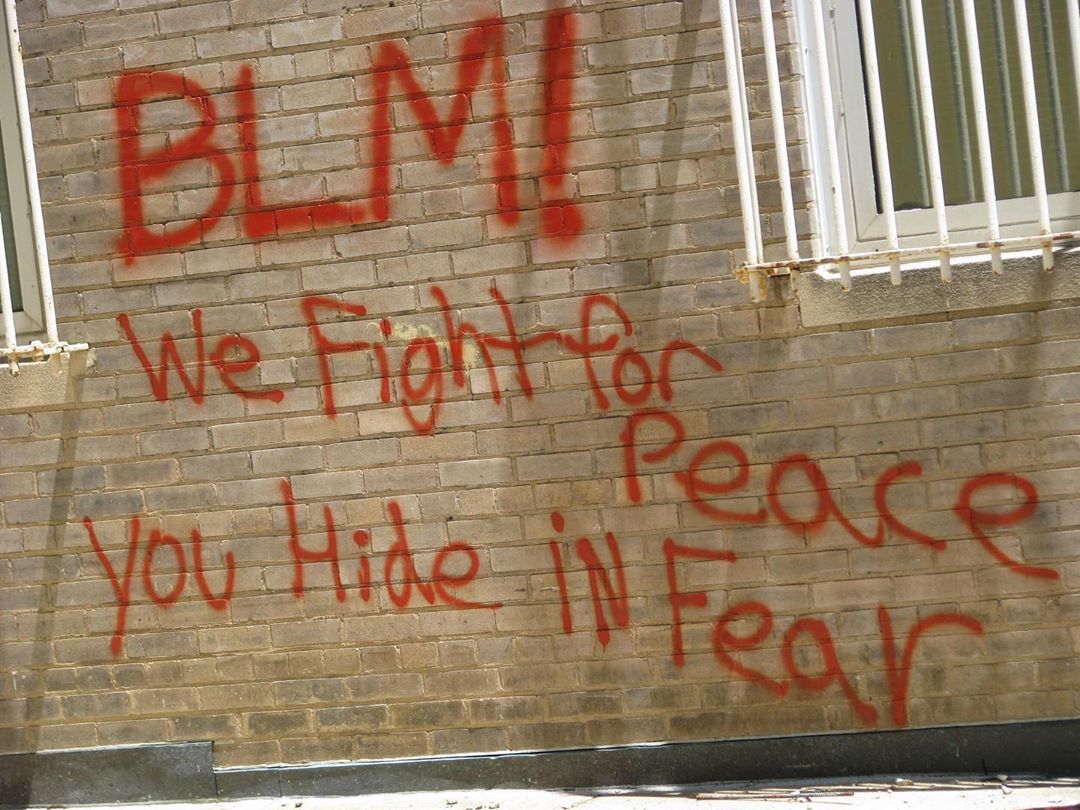 BLM!
We Fight for
Peace
You Hide iN Fear